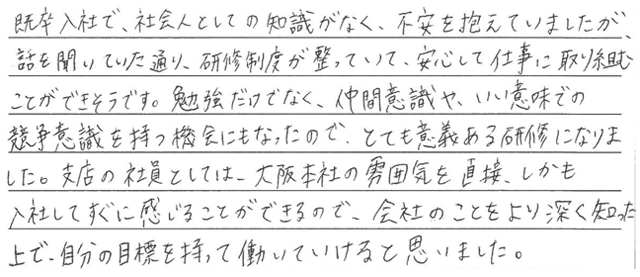 既卒入社で、社会人としての知識がなく、不安を抱えていましたが、
話を聞いていた通り、研修制度が整っていて、安心して仕事に取り組む
ことができそうです。勉強だけでなく、仲間意識や、いい意味での
競争意識を持つ機会にもなったので、とても意義ある研修になりま
した。支店の社員としては、大阪本社の雰囲気を直接、しかも
入社してすぐに感じることができるので、会社のことをより深く知った
上で、自分の目標を持って働いていけると思いました。